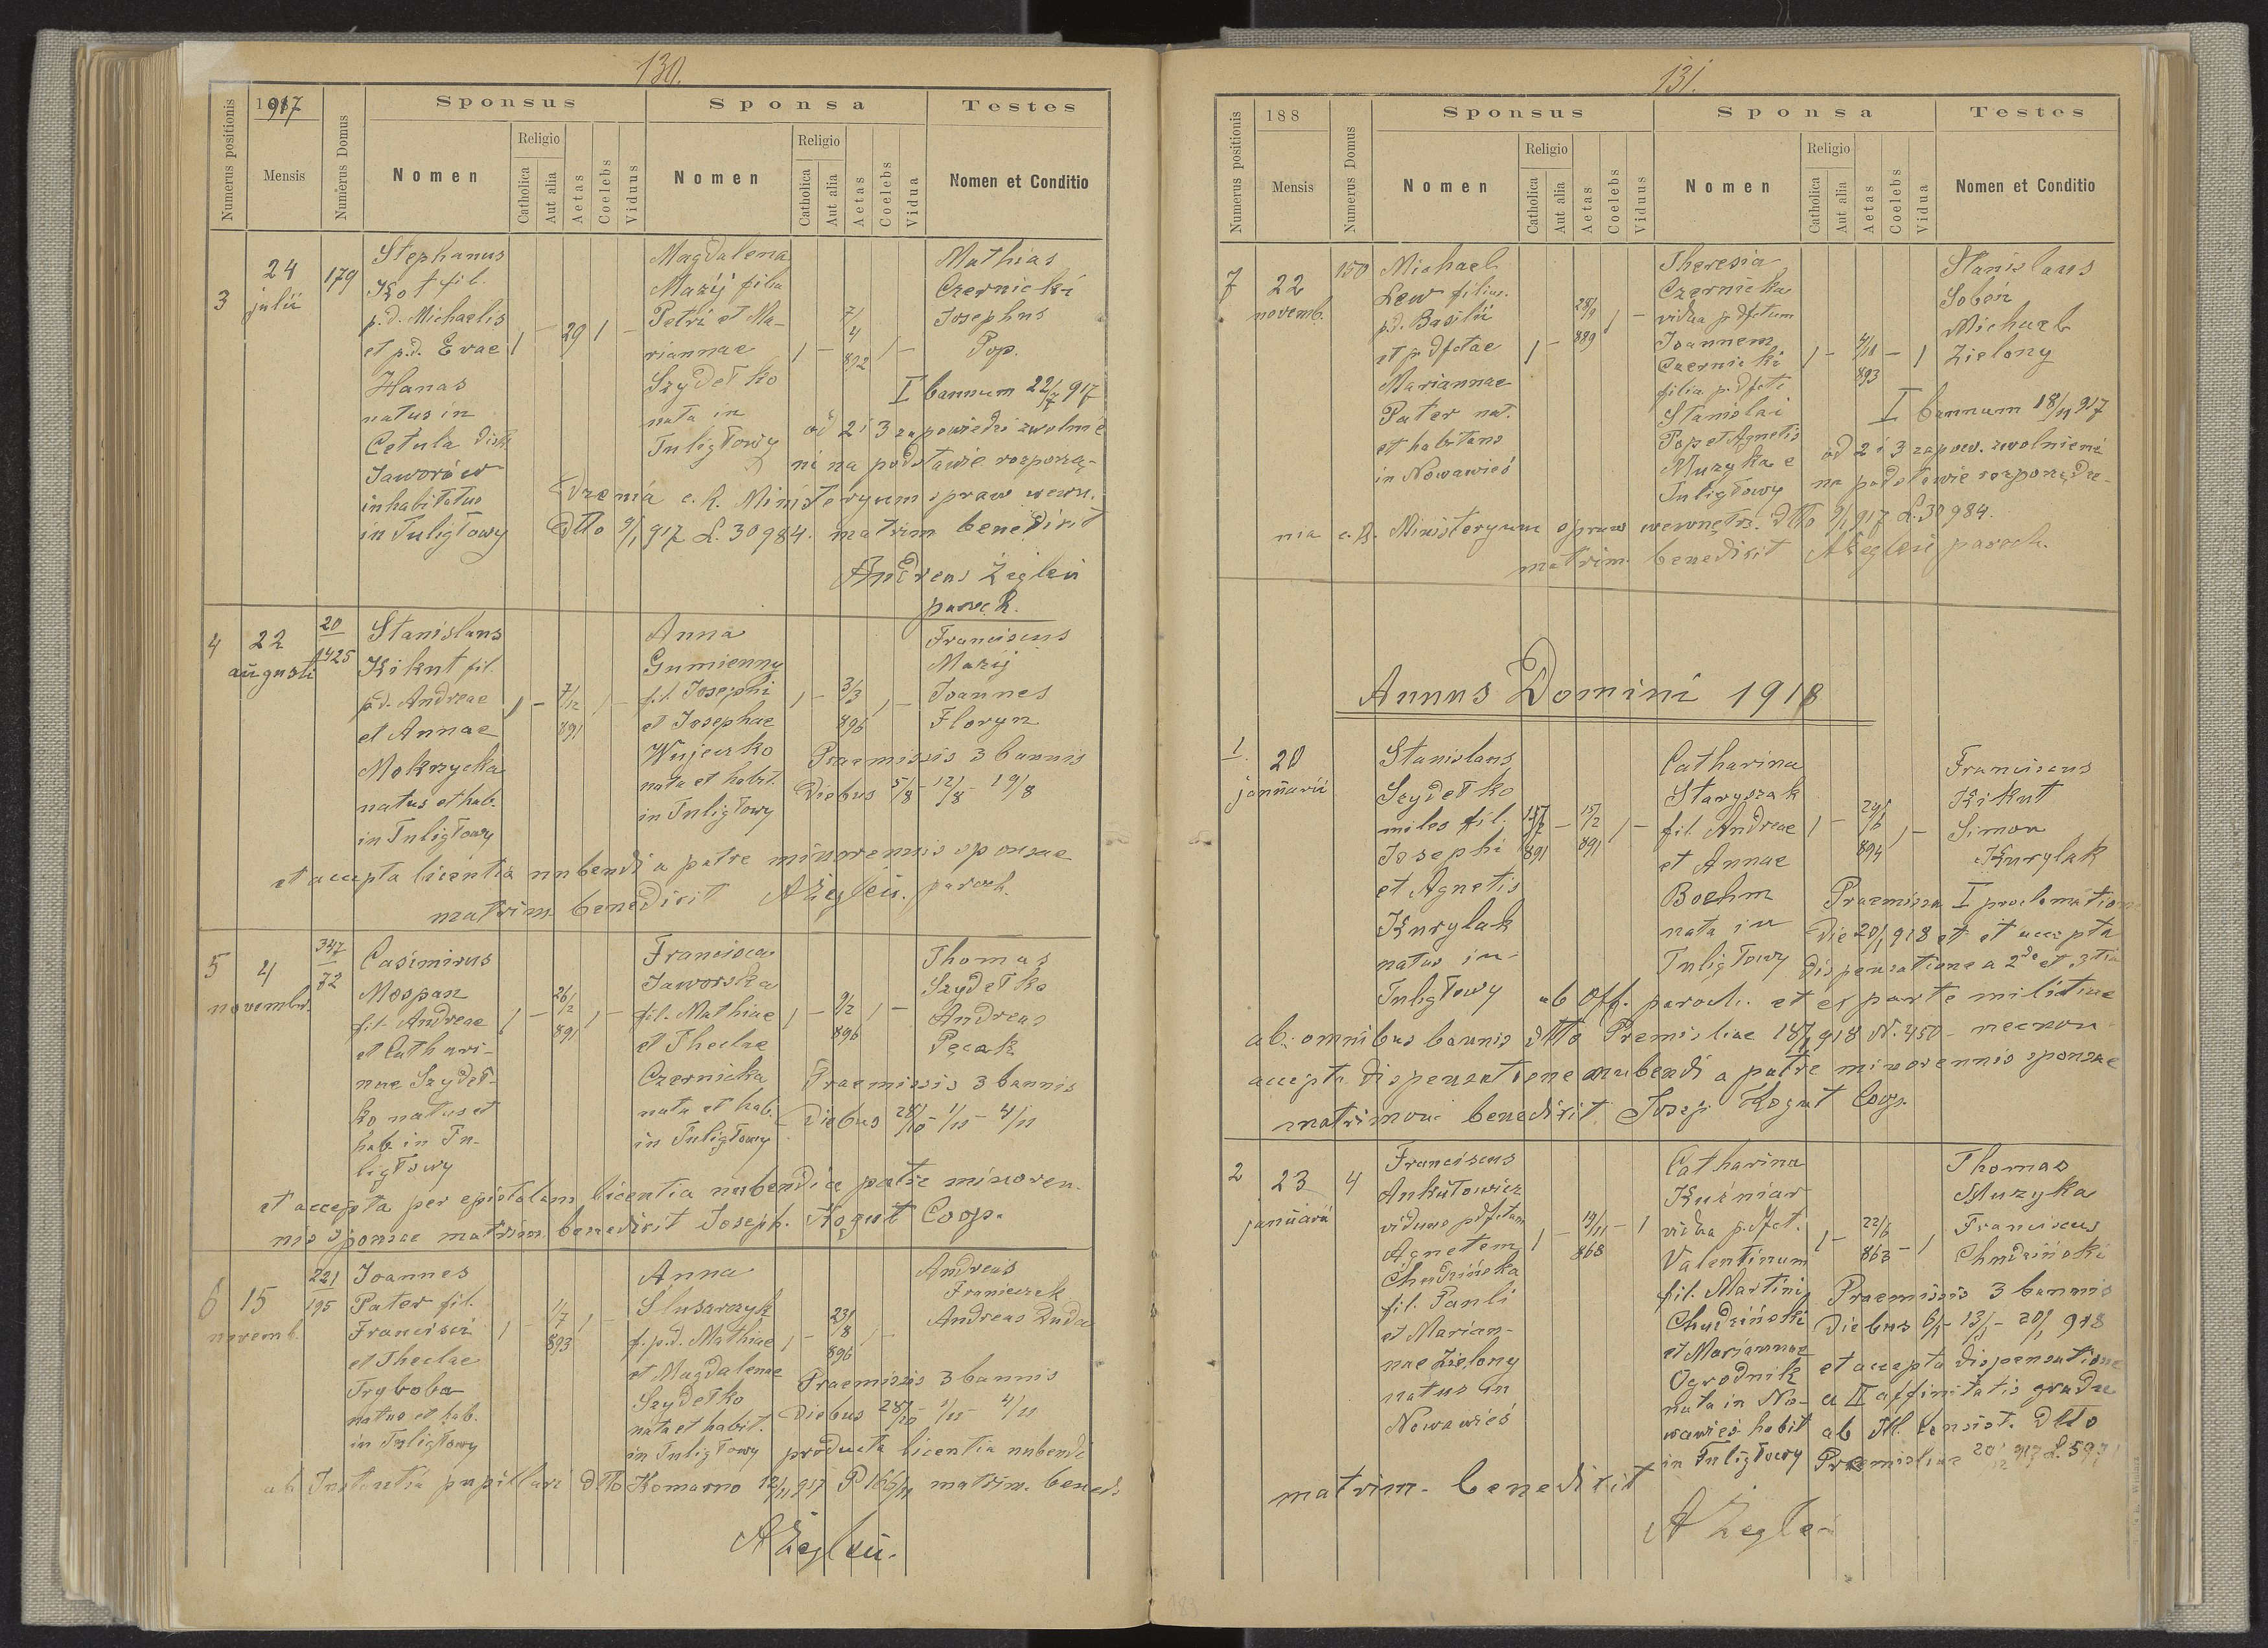 130.
1917
Numerus positionis
Mensis
Numerus Domus
Sponsus
Nomen
Religio
Catholica
Aut alia
Aetas
Coelebs
Viduus
Sponsa
Nomen
Religio
Catholica
Aut alia
Aetas
Coelebs
Vidua
Testes
Nomen et Conditio
3
24
julii
179
Stephanus
Kot fil.
p.d. Michaelis
et p.d. Evae
Hanas
natus in
Cetula distr.
Jaworów
inhabitatus
in Tuligłowy
1 - 29 1 -
Magdalena
Mazij filia
Petri et Ma-
riannae
Szydełko
nata in
Tuligłowy
1 - 7/4 892 1 -
Mathias
Czernicki
Josephus
Pop.
I bannum 22/7 917
od 2 i 3 zapowiedzi zwolnie
ni na podstawie rozporzą-
dzenia c. k. Ministeryum spraw wewn.
dtto 9/1 917 L. 30984. matrim benedixit
Andreas Żegleń
paroch.
4
22
augusti
20
1425
Stanislaus
Kikut fil.
p.d. Andreae
et Annae
Mokrzycka
natus et hab.
in Tuligłowy
1 - 7/12 891 1 -
Anna
Gumienny
fil. Josephi
et Josephae
Wujeczko
nata et habit.
in Tuligłowy
1 - 3/3 896 1 -
Franciscus
Mazij
Joannes
Floryn
Praemissis 3 bannis
Diebus 5/8 - 12/8 - 19/8
et accepta licentia nubendi a patre minorennis sponsae
matrim. benedixit AŻegleń. paroch.
5
4
novembr.
347
72
Casimirus
Mospan
fil. Andreae
et Cathari-
nae Szydeł-
ko natus et
hab. in Tu-
ligłowy
1 - 26/2 891 1 -
Francisca
Jaworska
fil. Mathiae
et Theclae
Czernicka
nata et hab.
in Tuligłowy
1 - 9/2 896 1 -
Thomas
Szydełko
Andreas
Pęcak
Praemissis 3 bannis
Diebus 28/10 - 1/11 - 4/11
et accepta per epistolam licentia nubendi a patre minoren-
nis sponsae matrim. benedixit Joseph. Kogut Coop.
6
15
novemb.
221
195
Joannes
Pater fil.
Francisci
et Theclae
Tryboba
natus et hab.
in Tuligłowy
1 - 1/7 893 1 -
Anna
Slusarczyk
f. p.d. Mathiae
et Magdalenae
Szydełko
nata et habit.
in Tuligłowy
1 - 23/8 896 1 -
Andreas
Franiczek
Andreas Duda
Praemissis 3 bannis
Diebus 28/10 - 1/11 - 4/11
producta licentia nubendi
ab Instantia pupillari dtto Komarno 12/11 917 P 166/11 matrim. bened.
AŻegleń.
131.
188
Numerus positionis
Mensis
Numerus Domus
Sponsus
Nomen
Religio
Catholica
Aut alia
Aetas
Coelebs
Viduus
Sponsa
Nomen
Religio
Catholica
Aut alia
Aetas
Coelebs
Vidua
Testes
Nomen et Conditio
7
22
novemb.
150
Michael
Lew filius.
p.d. Basilii
et p. dfctae
Mariannae
Pater nat.
et habitans
in Nowawieś
1 - 28/9 889 1 -
Theresia
Czernicka
vidua p. dfctum
Joannem
Czernicki
filia p. dfcti
Stanislai
Pop et Agnetis
Muzyka e
Tuligłowy
1 - 4/11 893 - 1
Stanislaus
Soboń
Michael
Zielony
I bannum 18/11 917
od 2 i 3 zapow. zwolnieni
na podstawie rozporządze-
nia c. k. Ministeryum spraw wewnętrz. dtto 9/1 917 L. 30984.
matrim. benedixit AŻegleń paroch.
Annus Domini 1918
1.
20
januarii
Stanislaus
Szydełko
miles fil.
Josephi
et Agnetis
Kurylak
natus in
Tuligłowy
15/2 891 - 15/2 891 1 -
Catharina
Staryszak
fil. Andreae
et Annae
Boehm
nata in
Tuligłowy
1 - 24/6 894 1 -
Franciscus
Kikut
Simon
Kurylak
Praemissa I proclamatione
die 20/1 918 et et accepta
dispensatione a 2da et 3tia
ab Off. paroch. et ex parte militiae
ab omnibus bannis dtto Premisliae 18/1 918 N. 450 - necnon
accepta dispensatione nubendi a patre minorennis sponsae
matrimon. benedixit Josep. Kogut Coop.
2
23
januarii
4
Franciscus
Ankutowicz
viduus p dfctam
Agnetem
Chudzińska
fil. Pauli
et Marian-
nae Zielony
natus in
Nowawieś
1 - 19/11 868 - 1
Catharina
Kuźniar
vidua p. dfct.
Valentinum
fil. Martini
Chudziński
et Mariannae
Ogrodnik
nata in No-
wawieś habit
in Tuligłowy
1 - 22/6 863 - 1
Thomas
Muzyka
Franciscus
Chudziński
Praemissis 3 bannis
Diebus 6/1 - 13/1 - 20/1 918
et accepta dispensatione
a II affinitatis gradu
ab Ill. Consist. dtto
Premisliae 20/12 917 L. 5931
matrim. benedixit
AŻegleń